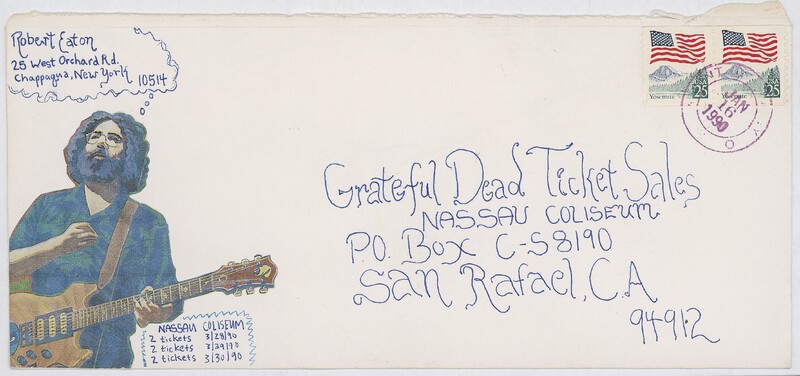 Robert Eaton
25 West Orchard Rd.
Chappaqua, New York 10514
Yosemite 25
Yosemite 25
JAN
16
1990
Grateful Dead Ticket Sales
NASSAU COLISEUM
P.O. Box C-S8190
San Rafael, CA
94912
NASSAU COLISEUM
2 tickets 3/28/90
2 tickets 3/29/90
2 tickets 3/30/90